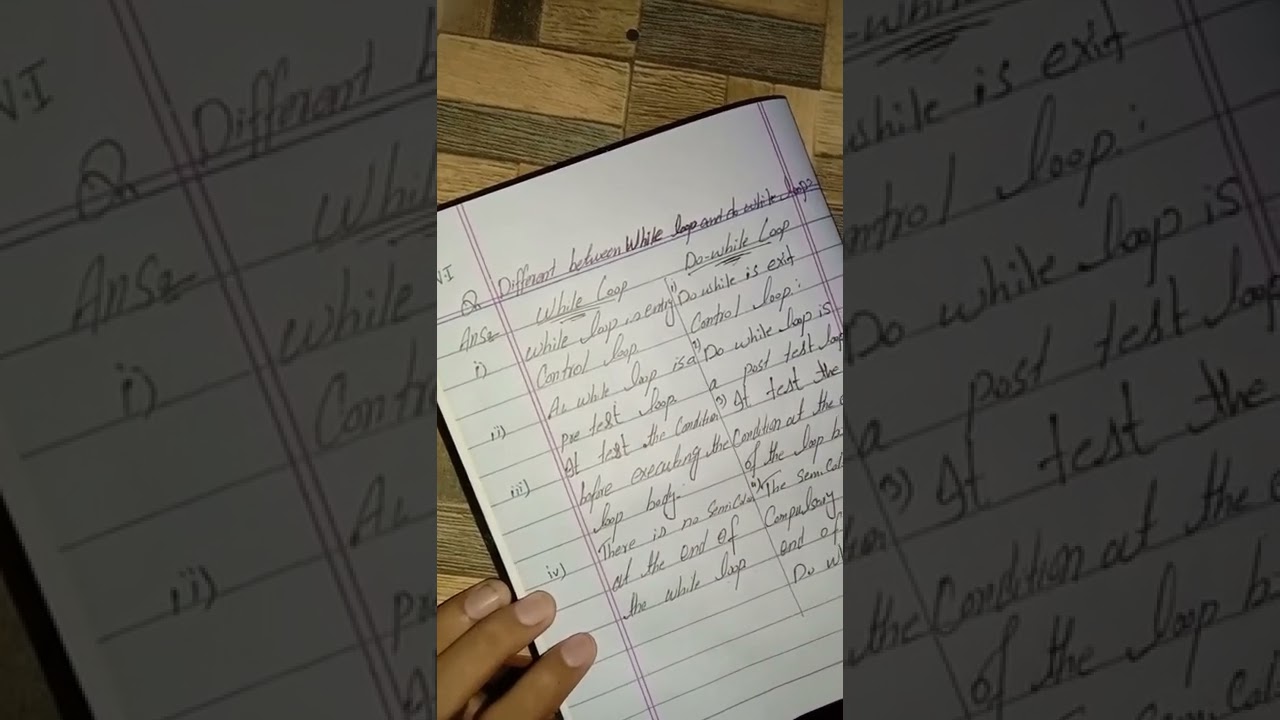 V.I
Q Different between While loop and do while loop?
Ans:-
While Loop
i) while loop is entry
Control loop
ii) A while loop is a
pre test loop
iii) It test the Condition
before executing the
loop body.
iv) There is no semicolon
at the end of
the while loop
Do-while Loop
1) Do while is exit
Control loop:
2) Do while loop is
a post test loop
3) It test the
Condition at the
of the loop
4) The semicol
Compulsory
end of
Do